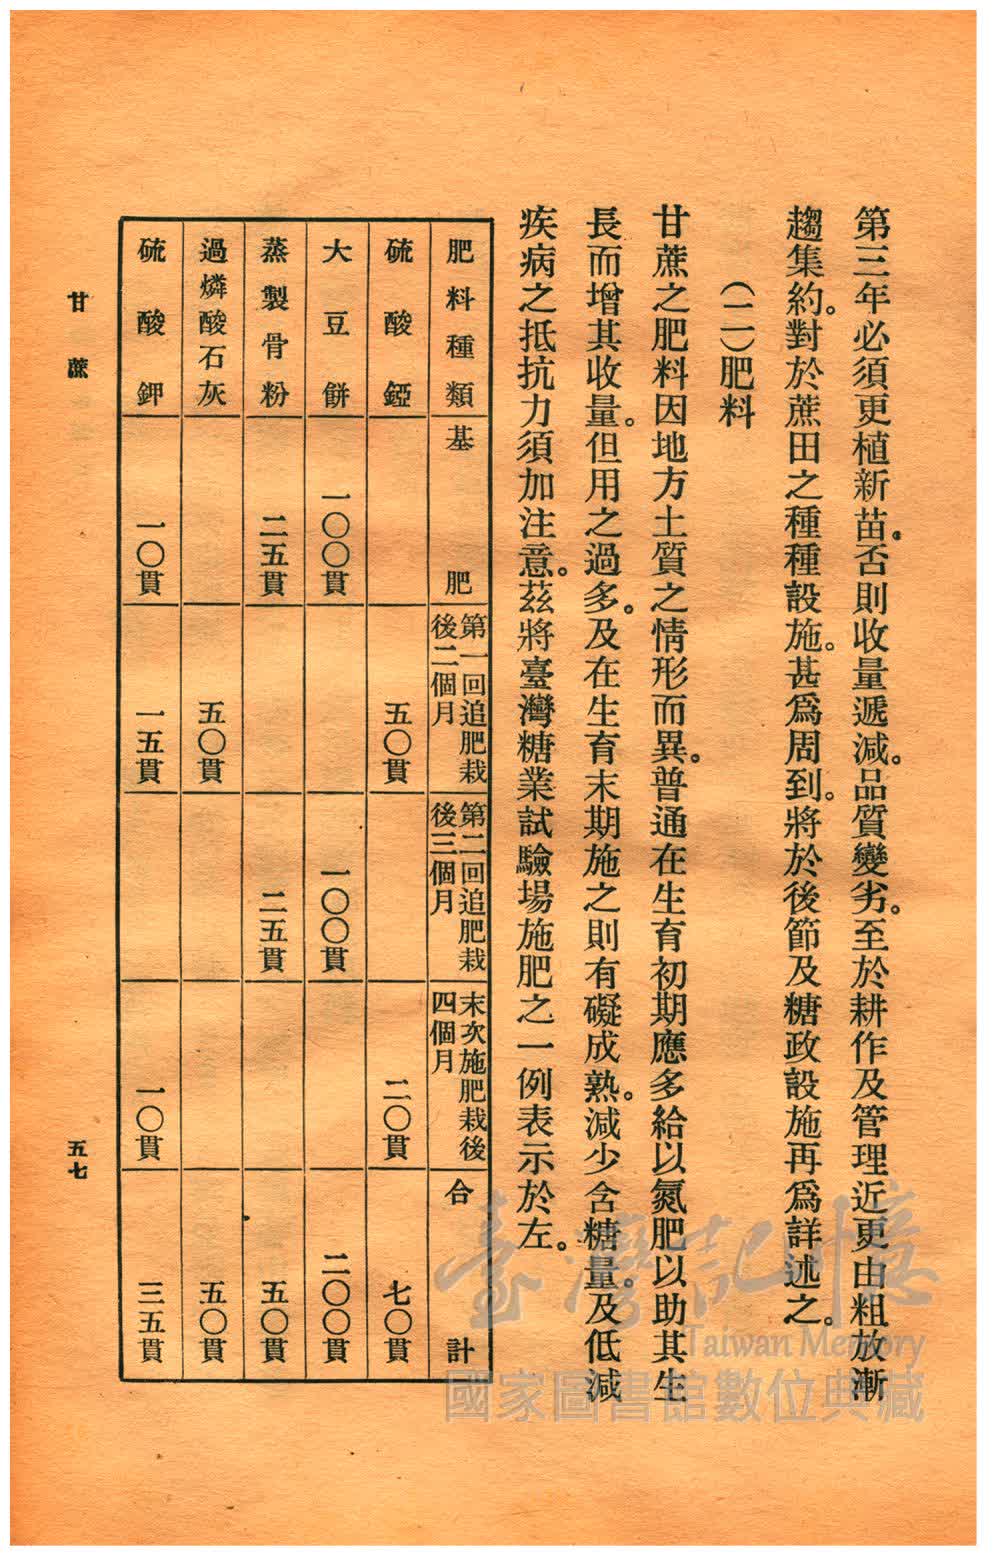 第三年必須更植新苗。否則收量遞減。品質變劣。至於耕作及管理近更由粗放漸
趨集約。對於蔗田之種種設施。甚爲周到。將於後節及糖政設施再爲詳述之。
(二)肥料
甘蔗之肥料因地方土質之情形而異。普通在生育初期應多給以氮肥以助其生
長而增其收量。但用之過多。及在生育末期施之則有礙成熟。減少含糖量。及低減
疾病之抵抗力須加注意。茲將臺灣糖業試驗場施肥之一例表示於左。
肥料種類 基肥 第一回追肥栽後二個月 第二回追肥栽後三個月 末次施肥栽後四個月 合計
硫酸錏 五〇貫 二〇貫 七〇貫
大豆餅 一〇〇貫 一〇〇貫 二〇〇貫
蒸製骨粉 二五貫 二五貫 五〇貫
過燐酸石灰 五〇貫 五〇貫
硫酸鉀 一〇貫 一五貫 一〇貫 三五貫
甘蔗 五七
臺灣記憶
Taiwan Memory
國家圖書館數位典藏